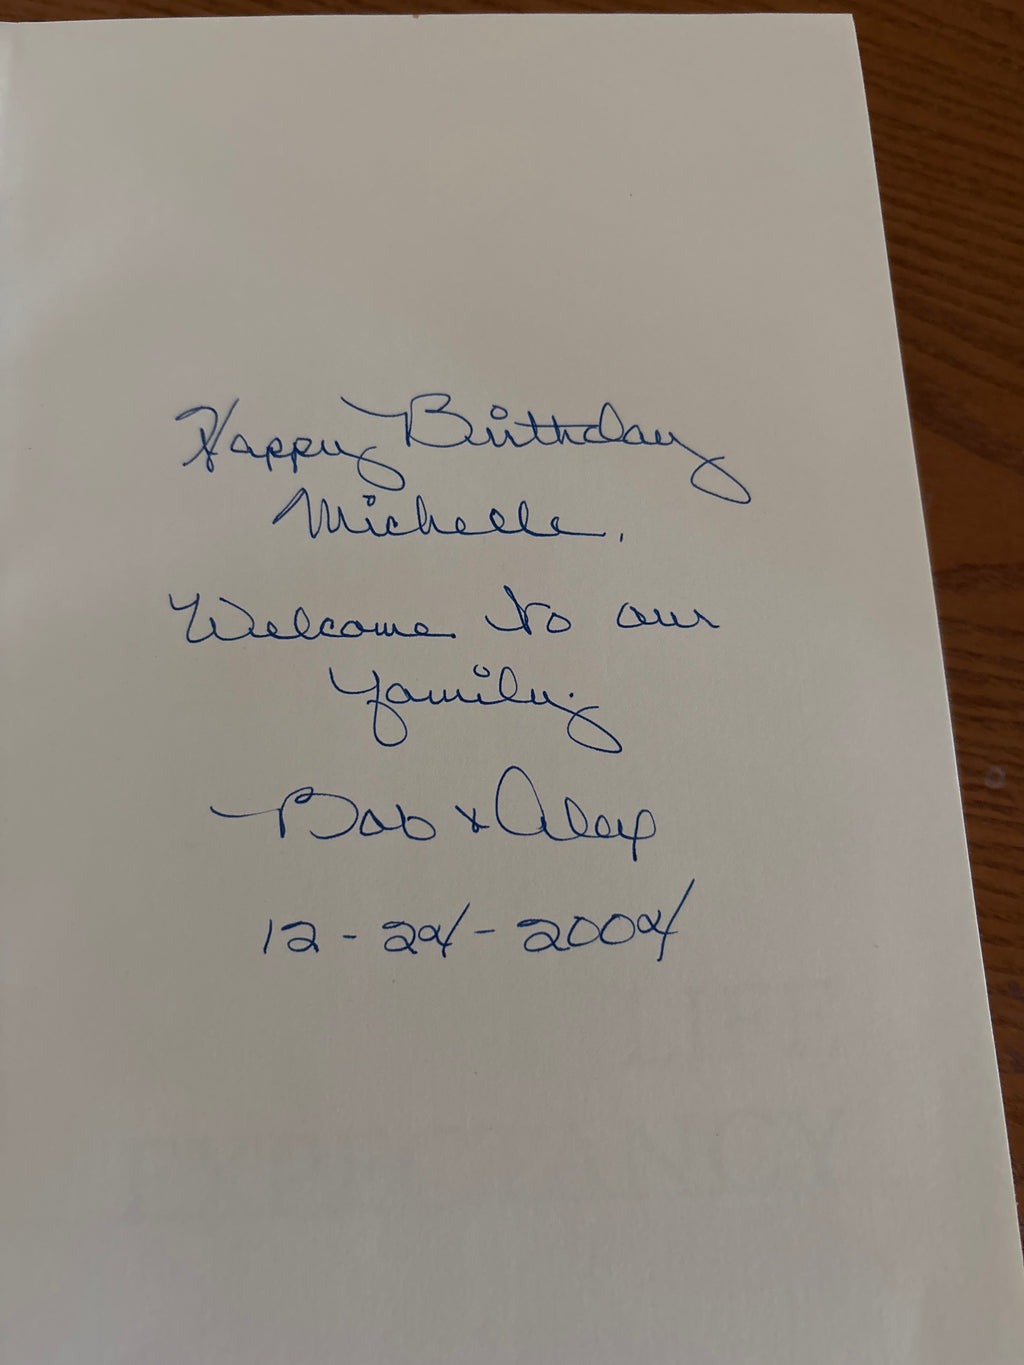 Happy Birthday
Michelle,
Welcome to our
family.
Bob & Alex
12-24-2004